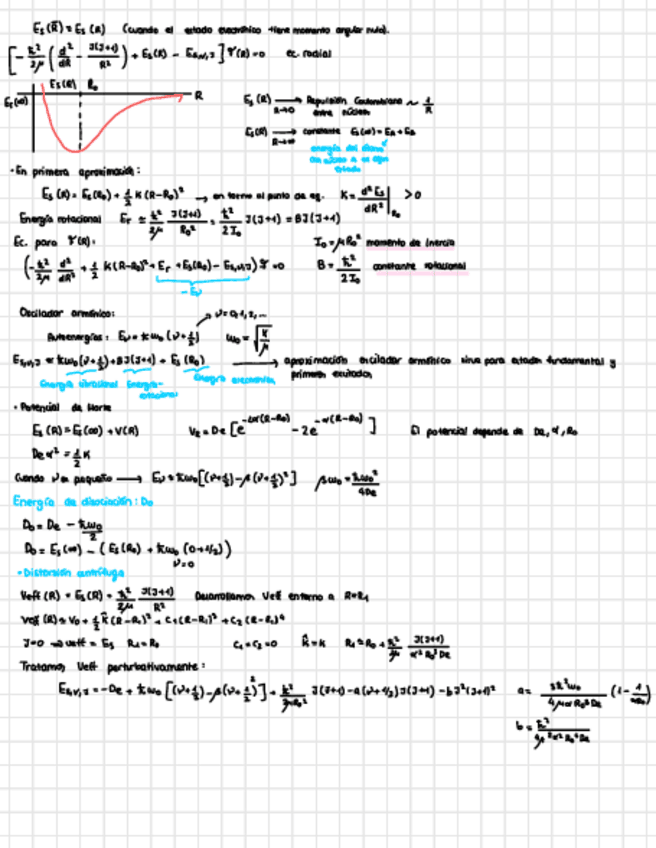 E_s(R̄) = E_s(R) (cuando el estado electrónico tiene momento angular nulo).
[-ħ²/2μ (d²/dR - J(J+1)/R²) + E_s(R) - E_s,ν,J] Ψ(R) = 0 ec. radial
E_s(R) R₀
E_s(∞) R
E_s(R) → R→0 Repulsión Coulombiana entre núcleos ~ 1/R
E_s(R) → R→∞ constante E_s(∞) = E_A + E_B
energía del átomo
· En primera aproximación:
E_s(R) = E_s(R₀) + 1/2 K(R-R₀)² → en torno al punto de eq. K = d²E_s/dR² |R₀ > 0
Energía rotacional E_r ≃ ħ²/2μ J(J+1)/R₀² = ħ²/2I₀ J(J+1) = BJ(J+1)
Ec. para Ψ(R): I₀ = μR₀² momento de inercia
(-ħ²/2μ d²/dR² + 1/2 K(R-R₀)² + E_r + E_s(R₀) - E_s,ν,J) Ψ = 0 B = ħ²/2I₀ constante rotacional
-E_ν
Oscilador armónico: ν = 0,1,2,...
Autoenergías: E_ν = ħω₀(ν+1/2) ω₀ = √(K/μ)
E_s,ν,J ≃ ħω₀(ν+1/2) + BJ(J+1) + E_s(R₀) → aproximación oscilador armónico sirve para estado fundamental y primeros excitados
Energía vibracional Energía rotacional Energía electrónica
· Potencial de Morse
E_s(R) = E_s(∞) + V(R) V_R = De [e^-2α(R-R₀) - 2e^-α(R-R₀)] El potencial depende de De, α, R₀
De α² = 1/2 K
Cuando ν es pequeño → E_ν = ħω₀[(ν+1/2) - β(ν+1/2)²] βω₀ = ħω₀²/4De
Energía de disociación: D₀
D₀ = De - ħω₀/2
D₀ = E_s(∞) - (E_s(R₀) + ħω₀(0+1/2))
ν=0
· Distorsión centrífuga
Veff(R) = E_s(R) + ħ²/2μ J(J+1)/R² Desarrollamos Veff entorno a R=R₁
Veff(R) ≃ V₀ + 1/2 K̃(R-R₁)² + C₁(R-R₁)³ + C₂(R-R₁)⁴
J=0 → Veff = E_s R₁=R₀ C₁=C₂=0 K̃=K R₁ ≃ R₀ + ħ²/2μ J(J+1)/α²R₀³De
Tratamos Veff perturbativamente:
E_s,ν,J = -De + ħω₀[(ν+1/2) - β(ν+1/2)²] + ħ²/2μR₀² J(J+1) - a(ν+1/2)J(J+1) - bJ²(J+1)² a = 3ħ²ω₀/4μαR₀³De (1 - 1/αR₀)
b = ħ⁴/4μ²α²R₀⁶De